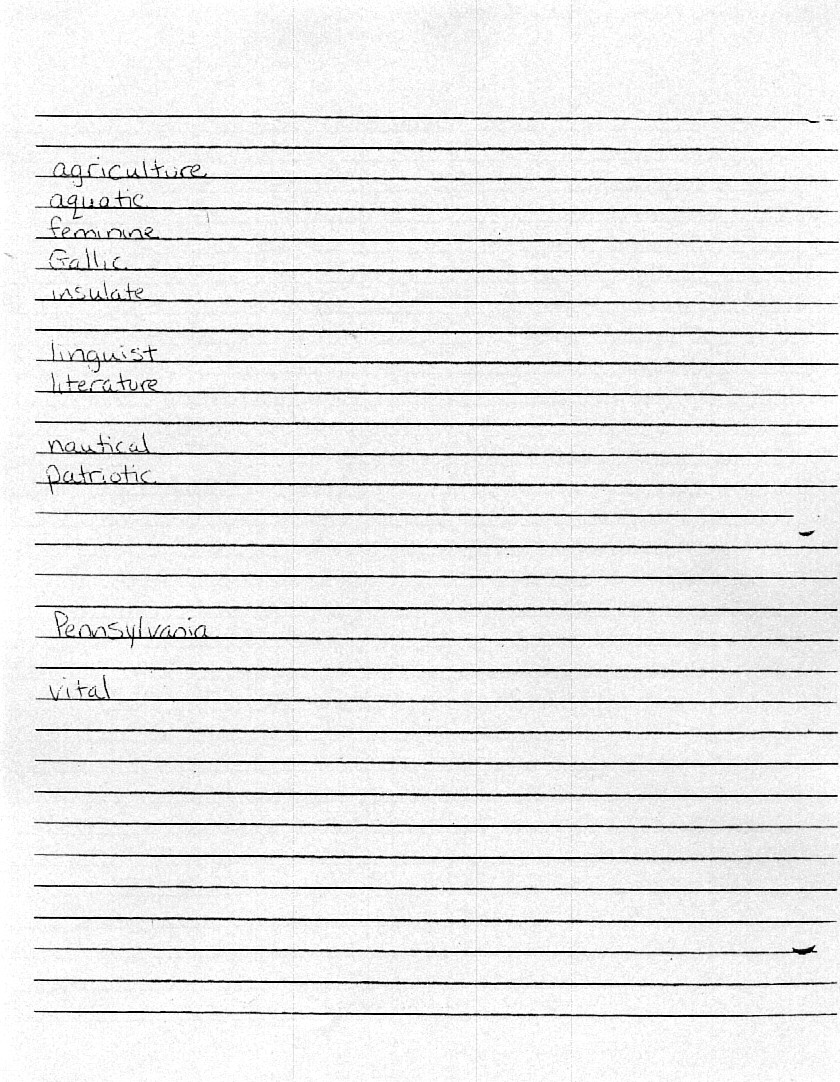 agriculture
aquatic
feminine
Gallic
insulate
linguist
literature
nautical
patriotic
Pennsylvania
vital